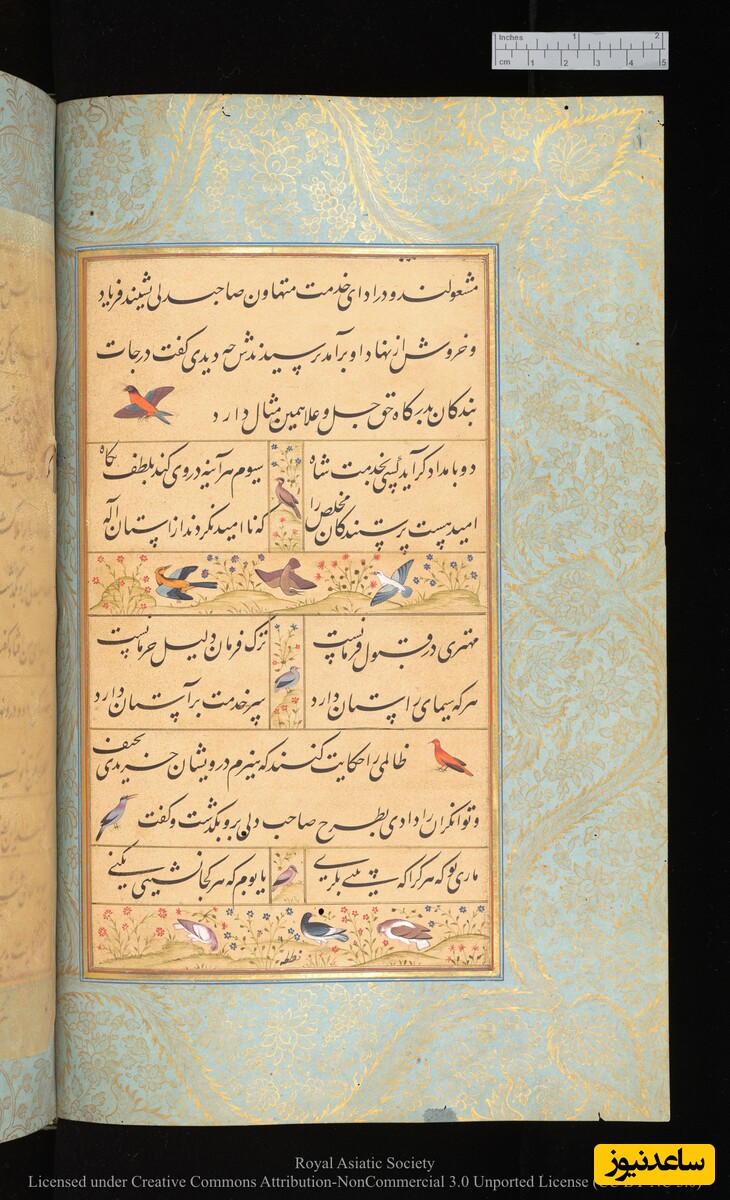 Inches 1 2
cm 1 2 3 4 5
مشغولند و در ادای خدمت متهاون صاحبدلی بشنید فریاد
و خروش از نهاد او برآمد پرسیدندش چه دیدی گفت درجات
بندکان بدرکاه حق جل و علا همین مثال دارد
دو بامداد کر آید کسی بخدمت شاه
سیوم هر آینه در وی کند بلطف نکاه
امید هست پرستندکان مخلص را
که ناامید نکردند از آستان اله
مهتری در قبول فرمانست
ترک فرمان دلیل حرمانست
هر که سیمای راستان دارد
سر خدمت بر آستان دارد
ظالمی را حکایت کنند که هیزم درویشان خریدی بحیف
و توانکران را دادی بطرح صاحب دلی برو بکذشت و کفت
ماری تو که هر کرا که ببینی بزنی
یا بوم که هر کجا نشینی بکنی
Royal Asiatic Society
Licensed under Creative Commons Attribution-NonCommercial 3.0 Unported License
ساعدنیوز